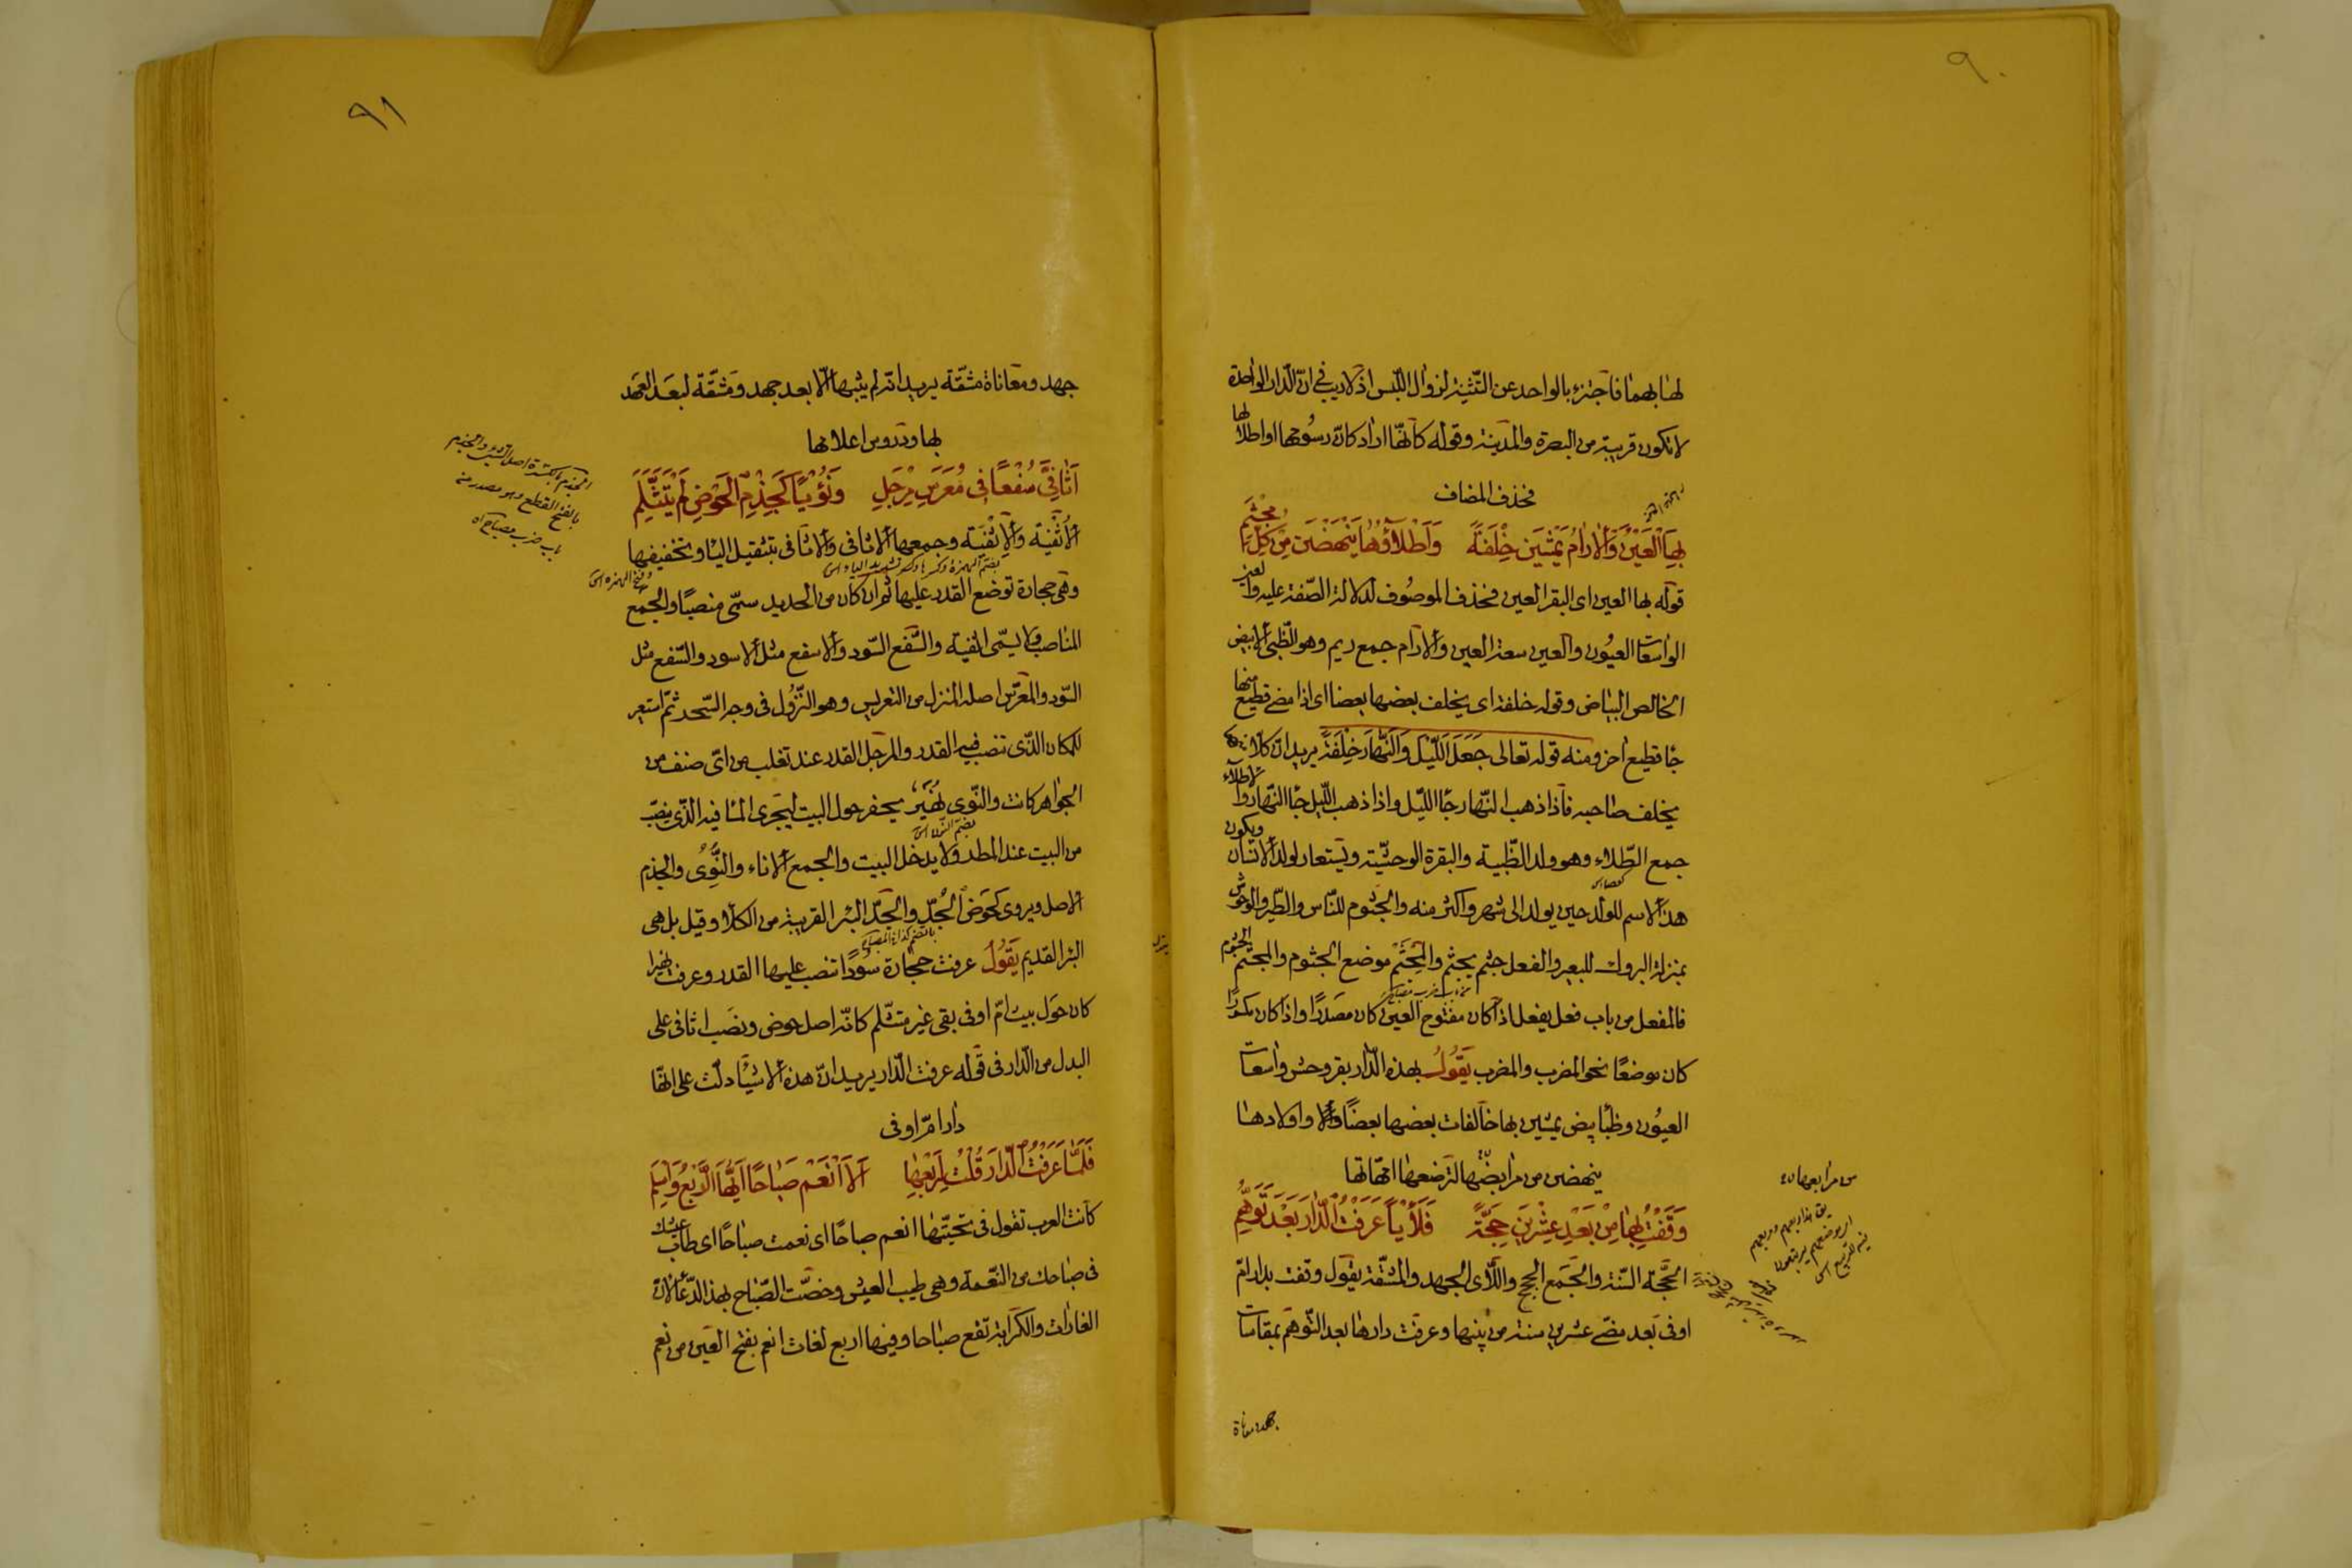 ٩٠
لها بهما فاجتزء بالواحد عن التّثنية لزوال اللّبس اذ لا ريب في انّ الدّار الواحدة
لا تكون قريبة من البصرة والمدينة وقوله كأنّها اراد كانّ رسومها او اطلالها
فحذف المضاف
بِهَا الْعَيْنُ وَالْارَامُ يَمْشِيَن خِلْفَةً وَاَطْلَاؤُهَا يَنْهَضْنَ مِنْ كُلِّ مَجْثَمِ
قوله بها العين اى البقر العين فحذف الموصوف لدلالة الصّفة عليه والعين
الواسعات العيون والعين سعة العين والارام جمع ريم وهو الظّبى الابيض
الخالص البياض وقوله خلفة اى يخلف بعضها بعضا اى اذا مضى قطيع منها
جا قطيع اخر ومنه قوله تعالى جَعَلَ اللَّيْلَ وَالنَّهَارَ خِلْفَةً يريد انّ كلا منهما
يخلف صاحبه فاذا ذهب النّهار جا اللّيل واذا ذهب اللّيل جا النّهار والاطلاء
جمع الطّلاء وهو ولد الظّبية والبقرة الوحشيّة ويستعار لولد الانسان ويكون
هذا الاسم للولد حين يولد الى شهر واكثر منه والجثوم للنّاس والطّير والوحوش
بمنزلة البروك للبعير والفعل جثم يجثم والمجثم موضع الجثوم والمجثم الجثوم
فالمفعل من باب فعل يفعل اذا كان مفتوح العين كان مصدرًا واذا كان مكسورًا
كان موضعًا نحو المضرب والمضرب يَقُولُ بهذه الدّار بقر وحش واسعات
العيون وظبا بيض يمشين بها خالفات بعضها بعضًا واولادها
ينهضن من مرابضها لترضعها امّهاتها
من مرابعها
وَقَفْتُ بِهَا مِنْ بَعْدِ عِشْرِيَن حِجَّةً فَلَأْيًا عَرَفْتُ الدَّارَ بَعْدَ تَوَهُّمِ
الحجّة السّنة والجمع الحجج واللّاى الجهد والمشقّة يقول وقفت بدار امّ
اوفى بعد مضى عشرين سنة من بينها وعرفت دارها بعد التّوهّم بمقاسات
جهد ومعاناة
٩١
جهد ومعاناة مشقّة يريد انّه لم يثبتها الّا بعد جهد ومشقّة لبعد العهد
بها ودروس اعلامها
اَثَافِيَّ سُفْعًا فِى مُعَرَّسِ مِرْجَلٍ وَنُؤْيًا كَجِذْمِ الْحَوْضِ لَمْ يَتَثَلَّمِ
الجذم بالكسرة اصل الشئ والجذم
بالفتح القطع وهو مصدر من
باب ضرب مصباح اه
الاُثفية والاِثفية وجمعها الاثافى والاثافى بتثقيل اليا وتخفيفها
وهى حجارة توضع القدر عليها ثم ان كان من الحديد سمّى منصبًا والجمع
المناصب ولا يسمّى اثفية والسّفع السّود والاسفع مثل الاسود والسّفع مثل
السّود والمعرّس اصله المنزل من التعريس وهو النّزول فى وجه السّحر ثمّ استعير
للمكان الّذى تنصب فيه القدر والمرجل القدر عند ثعلب من اىّ صنف من
الجواهر كانت والنّوى نهير يحفر حول البيت ليجرى الما فيه الذّى ينصبّ
من البيت عند المطر ولا يدخل البيت والجمع الاناء والنّوى والجذم
الاصل ويروى كحوض الجدّ والجدّ البئر القريبة من الكلأ وقيل بل هى
البئر القديم يَقُولُ عرفت حجارة سودًا تنصب عليها القدر وعرفت نهيرا
كان حول بيت امّ اوفى بقى غير متثلّم كانّه اصل حوض ونصب اثافى على
البدل من الدّار فى قوله عرفت الدّار يريد انّ هذه الاشيا دلّت على انّها
دار امّ اوفى
فَلَمَّا عَرَفْتُ الدَّارَ قُلْتُ لِرَبْعِهَا اَلَا اَنْعِمْ صَبَاحًا اَيُّهَا الرَّبْعُ وَاسْلَمِ
كانت العرب تقول فى تحيّتها انعم صباحًا اى نعمت صباحًا اى طاب عيشك
فى صباحك من النّعمة وهى طيب العيش وخصّت الصّباح بهذ الدّعا لانّ
الغارات والكرايه تقع صباحا وفيها اربع لغات انعم بفتح العين من نعم